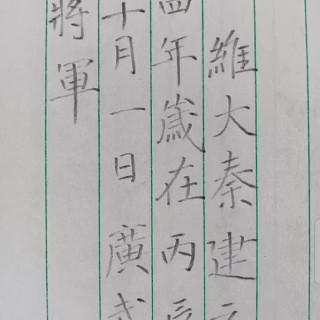 維大秦建元
四年歲在丙辰
十月一日廣武
將軍